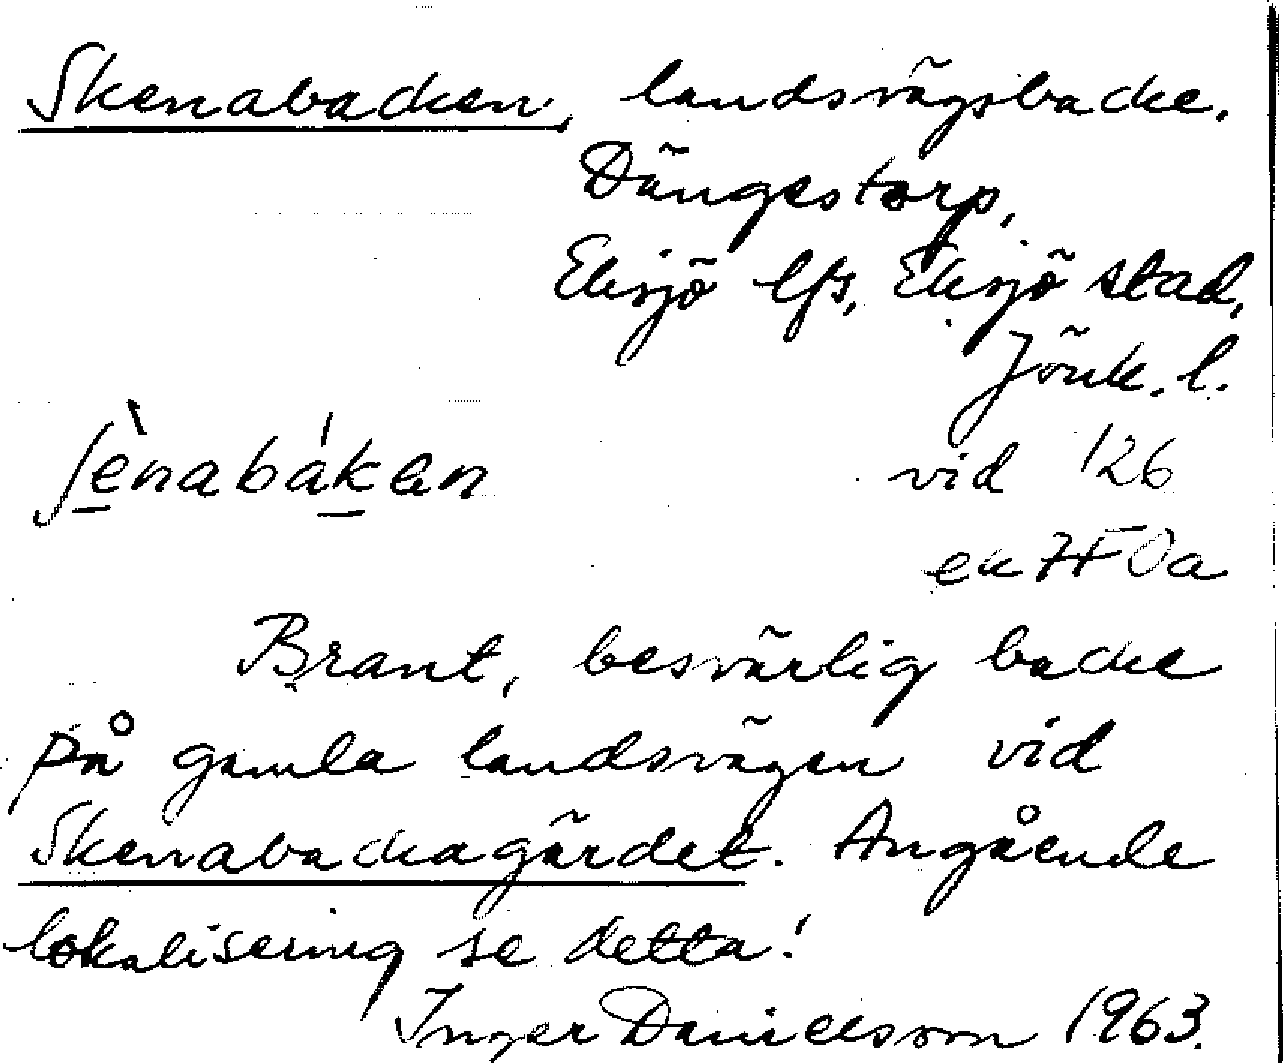 Skenabacken, landsvägsbacke.
Dängestorp,
Eksjö lfs, Eksjö stad,
Jönk. l.
ʃènabákɘn vid 126
ek 7F0a
Brant, besvärlig backe
på gamla landsvägen vid
Skenabackagärdet. Angående
lokalisering se detta!
Inger Danielsson 1963.